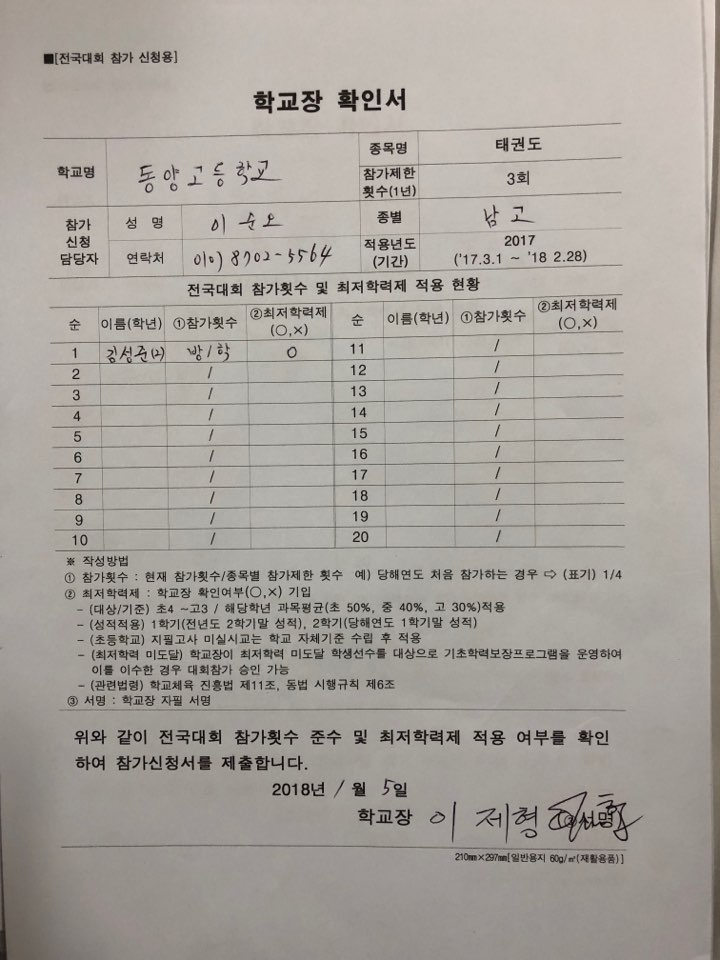 ■[전국대회 참가 신청용]
학교장 확인서
학교명 동양고등학교 종목명 태권도
참가제한 횟수(1년) 3회
참가 신청 담당자 성 명 이순오 종별 남고
연락처 010) 8702-5564 적용년도 (기간) 2017 ('17.3.1 ~ '18 2.28)
전국대회 참가횟수 및 최저학력제 적용 현황
순 이름(학년) ①참가횟수 ②최저학력제 (○,×) 순 이름(학년) ①참가횟수 ②최저학력제 (○,×)
1 김성준(2) 방/학 ○ 11 /
2 / 12 /
3 / 13 /
4 / 14 /
5 / 15 /
6 / 16 /
7 / 17 /
8 / 18 /
9 / 19 /
10 / 20 /
※ 작성방법
① 참가횟수 : 현재 참가횟수/종목별 참가제한 횟수 예) 당해연도 처음 참가하는 경우 ⇨ (표기) 1/4
② 최저학력제 : 학교장 확인여부(○,×) 기입
- (대상/기준) 초4 ~고3 / 해당학년 과목평균(초 50%, 중 40%, 고 30%)적용
- (성적적용) 1학기(전년도 2학기말 성적), 2학기(당해연도 1학기말 성적)
- (초등학교) 지필고사 미실시교는 학교 자체기준 수립 후 적용
- (최저학력 미도달) 학교장이 최저학력 미도달 학생선수를 대상으로 기초학력보장프로그램을 운영하여
이를 이수한 경우 대회참가 승인 가능
- (관련법령) 학교체육 진흥법 제11조, 동법 시행규칙 제6조
③ 서명 : 학교장 자필 서명
위와 같이 전국대회 참가횟수 준수 및 최저학력제 적용 여부를 확인
하여 참가신청서를 제출합니다.
2018년 1월 5일
학교장 이 제형
210㎜×297㎜[일반용지 60g/㎡(재활용품)]